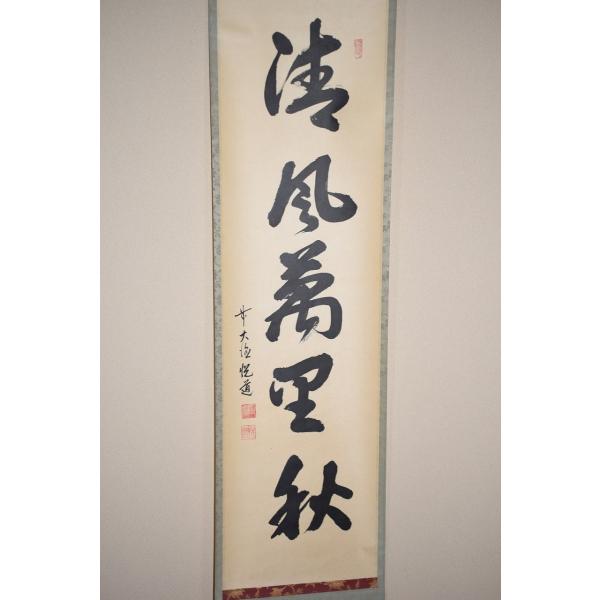 清風萬里秋
大徳悦道